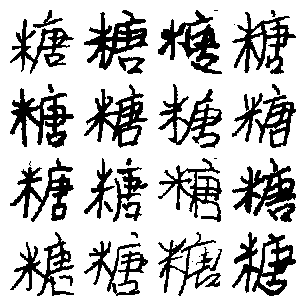 糖糖糖糖
糖糖糖糖
糖糖糖糖
糖糖糖糖